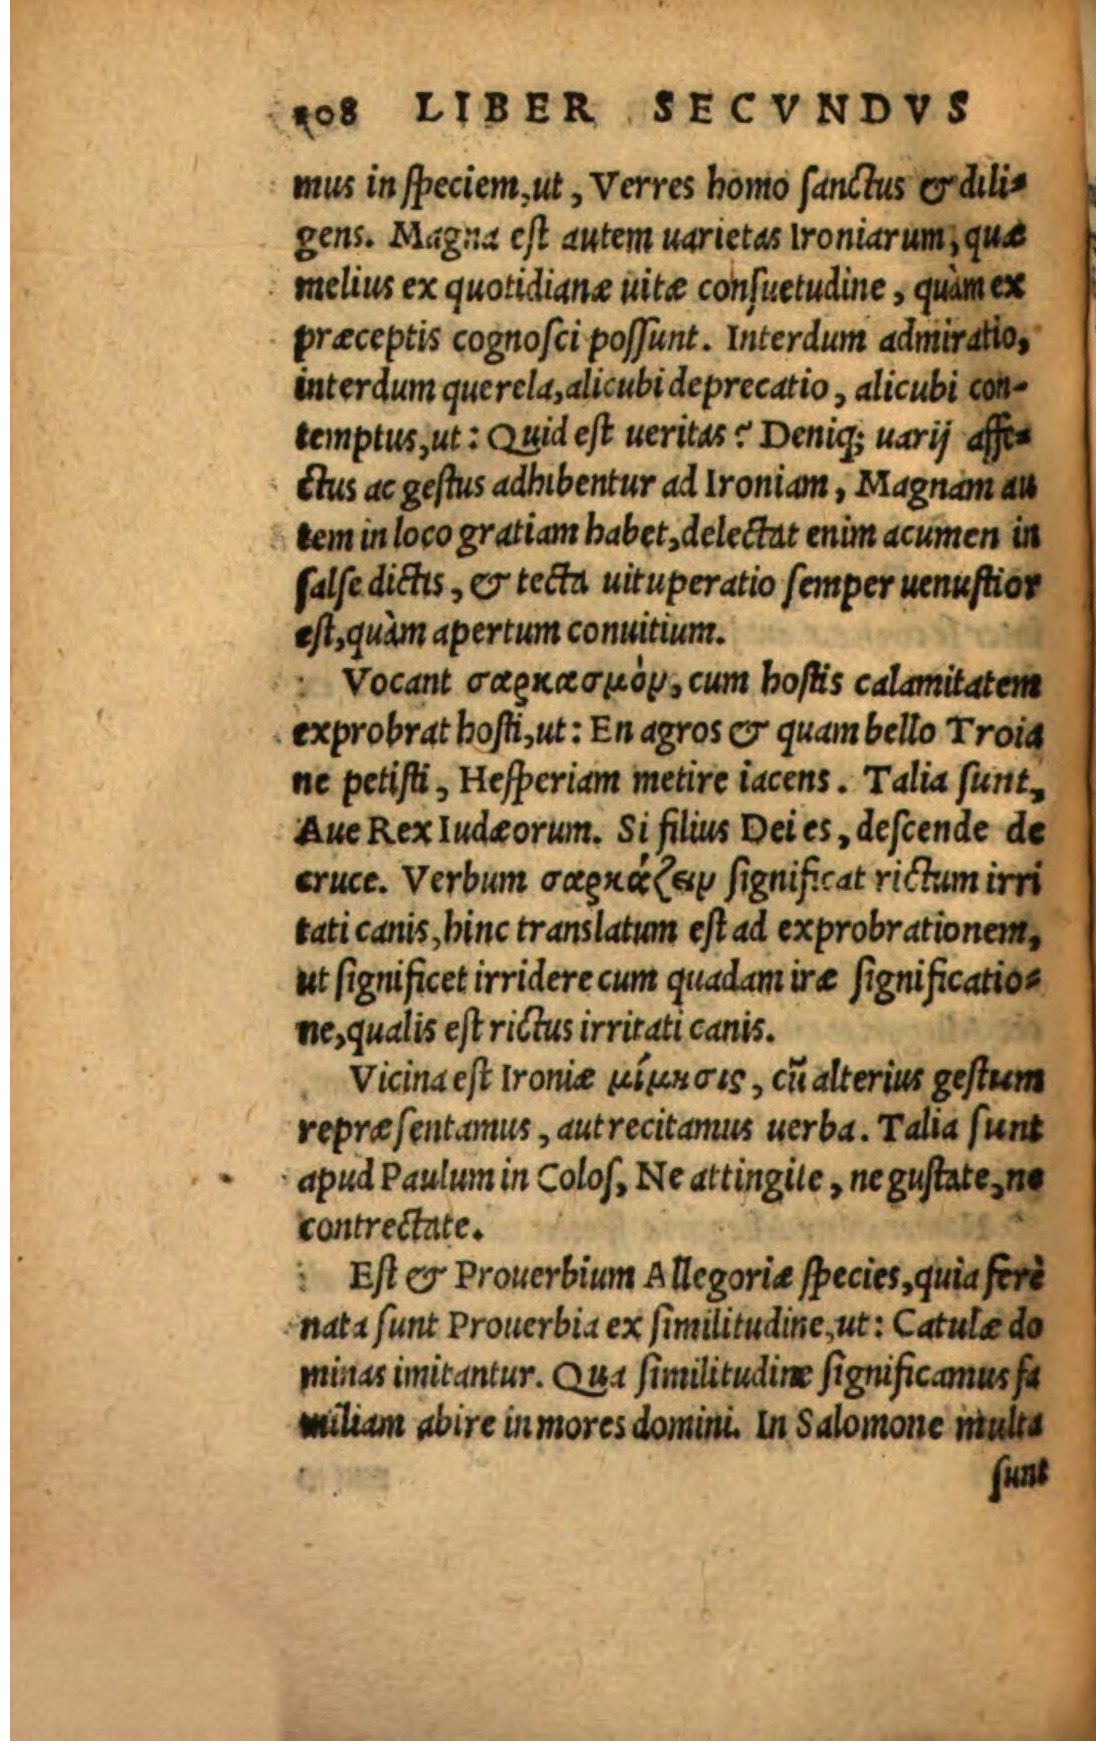 108 LIBER SECVNDVS
mus in speciem, ut, Verres homo sanctus & dili-
gens. Magna est autem uarietas Ironiarum, quæ
melius ex quotidianæ uitæ consuetudine, quàm ex
præceptis cognosci possunt. Interdum admiratio,
interdum querela, alicubi deprecatio, alicubi con-
temptus, ut: Quid est ueritas? Deniq; uarij affe-
ctus ac gestus adhibentur ad Ironiam, Magnam au
tem in loco gratiam habet, delectat enim acumen in
salse dictis, & tecta uituperatio semper uenustior
est, quàm apertum conuitium.
Vocant σαρκασμὸν, cum hostis calamitatem
exprobrat hosti, ut: En agros & quam bello Troia
ne petisti, Hesperiam metire iacens. Talia sunt,
Aue Rex Iudæorum. Si filius Dei es, descende de
cruce. Verbum σαρκάζειν significat rictum irri
tati canis, hinc translatum est ad exprobrationem,
ut significet irridere cum quadam iræ significatio-
ne, qualis est rictus irritati canis.
Vicina est Ironiæ μίμησις, cū alterius gestum
repræsentamus, aut recitamus uerba. Talia sunt
apud Paulum in Colos, Ne attingite, ne gustate, ne
contrectate.
Est & Prouerbium Allegoriæ species, quia ferè
nata sunt Prouerbia ex similitudine, ut: Catulæ do
minas imitantur. Qua similitudine significamus fa
miliam abire in mores domini. In Salomone multa
sunt